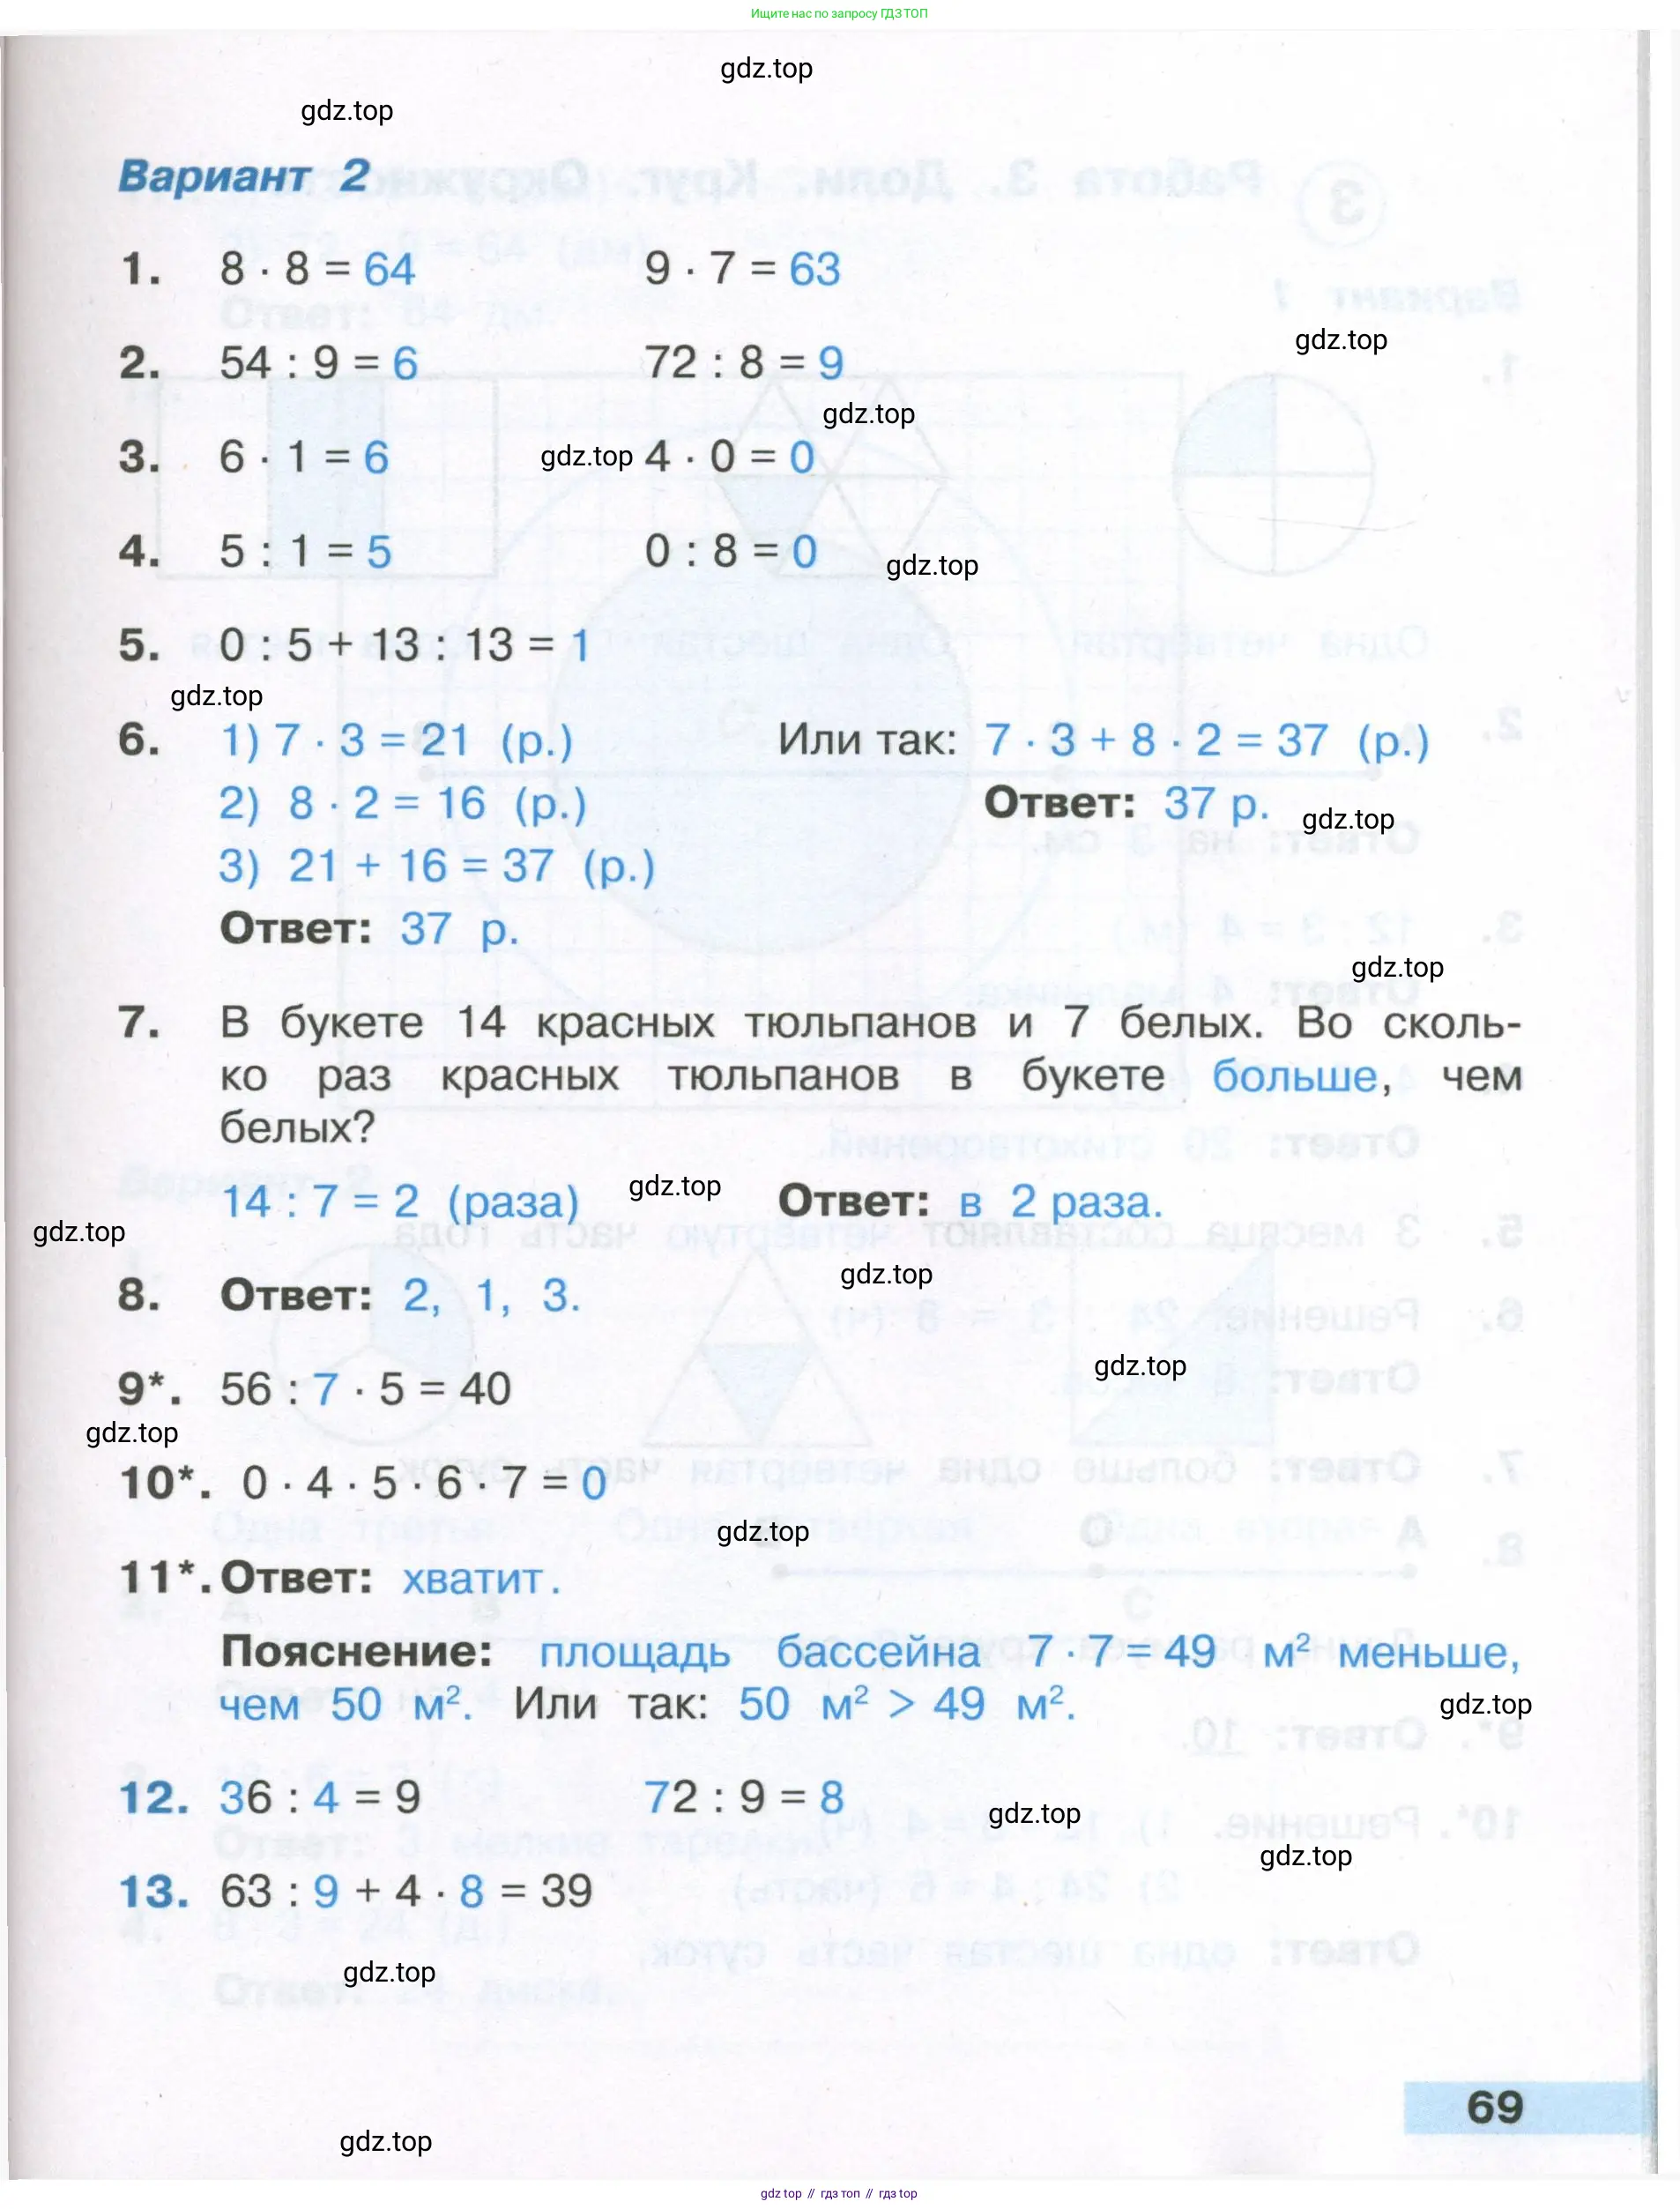 Ищите нас по запросу ГДЗ ТОП
gdz.top
gdz.top
Вариант 2
1. 8 · 8 = 64 9 · 7 = 63
gdz.top
2. 54 : 9 = 6 72 : 8 = 9
gdz.top
3. 6 · 1 = 6 gdz.top 4 · 0 = 0
4. 5 : 1 = 5 0 : 8 = 0 gdz.top
5. 0 : 5 + 13 : 13 = 1
gdz.top
6. 1) 7 · 3 = 21 (р.) Или так: 7 · 3 + 8 · 2 = 37 (р.)
2) 8 · 2 = 16 (р.) Ответ: 37 р. gdz.top
3) 21 + 16 = 37 (р.)
Ответ: 37 р.
gdz.top
7. В букете 14 красных тюльпанов и 7 белых. Во сколь-
ко раз красных тюльпанов в букете больше, чем
белых?
14 : 7 = 2 (раза) gdz.top Ответ: в 2 раза.
gdz.top
gdz.top
8. Ответ: 2, 1, 3.
gdz.top
9*. 56 : 7 · 5 = 40
gdz.top
10*. 0 · 4 · 5 · 6 · 7 = 0
gdz.top
11*. Ответ: хватит.
Пояснение: площадь бассейна 7 · 7 = 49 м² меньше,
чем 50 м². Или так: 50 м² > 49 м².
gdz.top
12. 36 : 4 = 9 72 : 9 = 8
gdz.top
gdz.top
13. 63 : 9 + 4 · 8 = 39
gdz.top
69
gdz.top
gdz top // гдз топ // гдз top